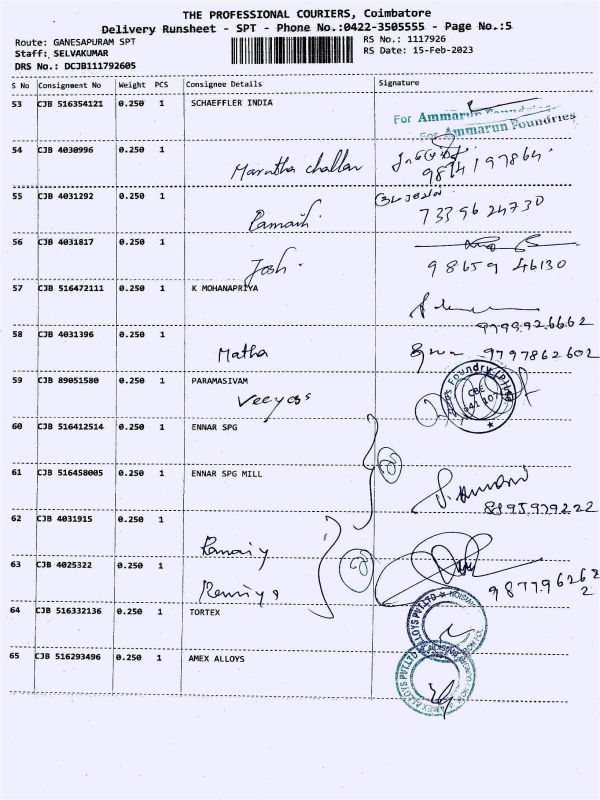 THE PROFESSIONAL COURIERS, Coimbatore
Delivery Runsheet - SPT - Phone No.:0422-3505555 - Page No.:5
Route: GANESAPURAM SPT
RS No.: 1117926
Staff: SELVAKUMAR
RS Date: 15-Feb-2023
DRS No.: DCJB111792605
S No Consignment No Weight PCS Consignee Details Signature
53 CJB 516354121 0.250 1 SCHAEFFLER INDIA
For Ammarun Foundries
For Ammarun Foundries
54 CJB 4030996 0.250 1 Marutha challan
9894197864
55 CJB 4031292 0.250 1
7339624730
56 CJB 4031817 0.250 1 Josh
98659 46130
57 CJB 516472111 0.250 1 K MOHANAPRIYA
9799926662
58 CJB 4031396 0.250 1 Matha 9797862602
59 CJB 89051580 0.250 1 PARAMASIVAM
Veeyas
CBE
641 107
60 CJB 516412514 0.250 1 ENNAR SPG
61 CJB 516458005 0.250 1 ENNAR SPG MILL
8895979222
62 CJB 4031915 0.250 1
63 CJB 4025322 0.250 1 Remiya
9877962622
64 CJB 516332136 0.250 1 TORTEX
65 CJB 516293496 0.250 1 AMEX ALLOYS
AMEX ALLOYS PVT.LTD